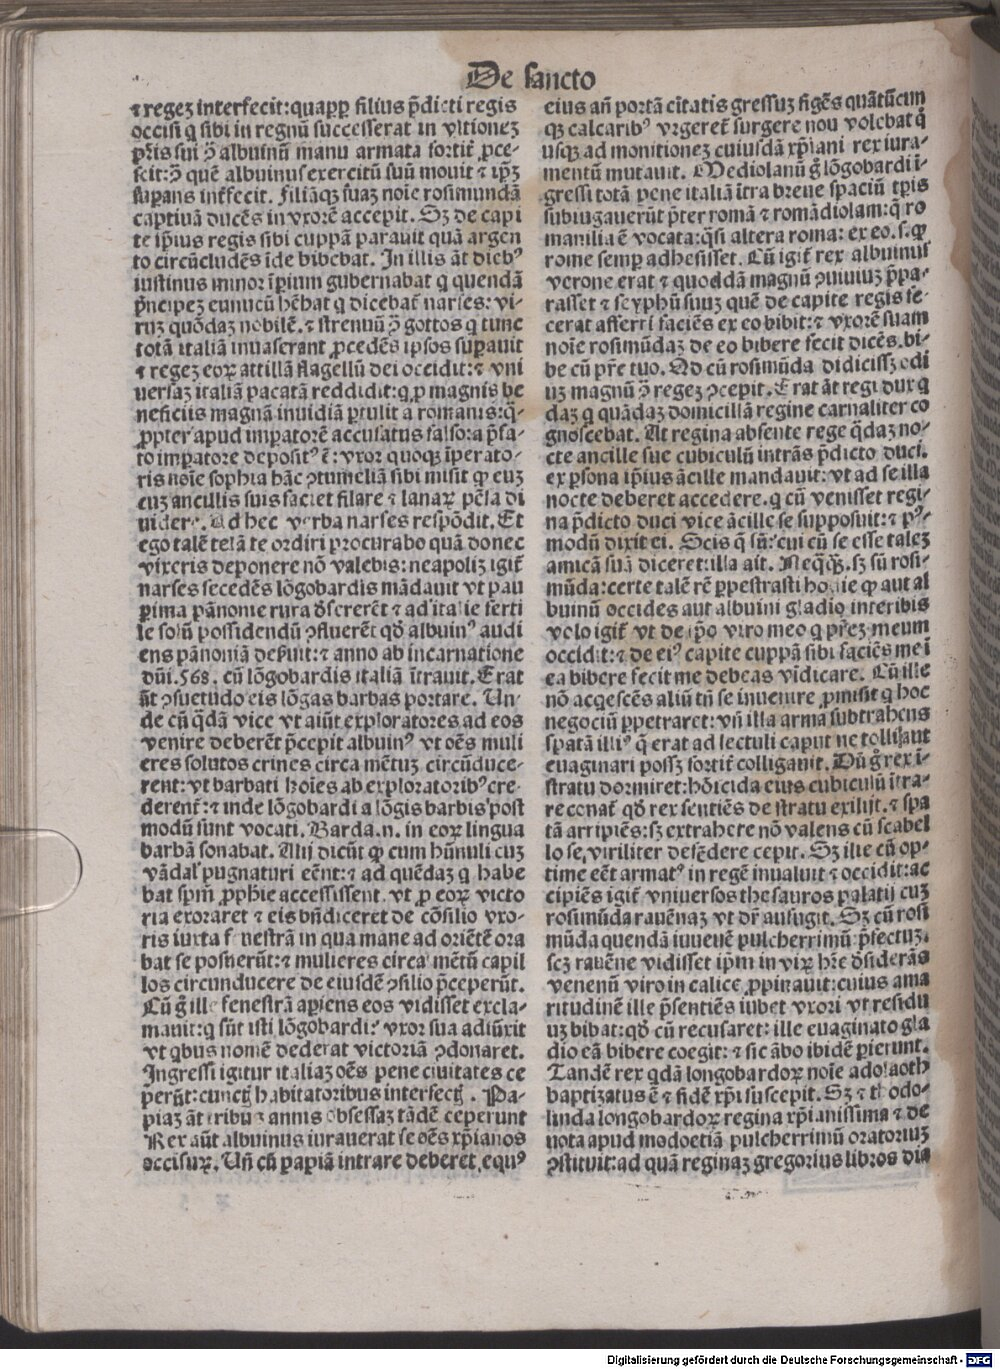 De sancto
⁊regeꝫ interfecit:quapꝓ filius p̄dicti regis
occisi q̇ sibi in regnū successerat in vltioneꝫ
pr̄is sui ꝯ̄ albuinū manu armata fortit̄ ꝓce-
ssit:ꝯ̄ quē albuinus exercitū suū mouit ⁊ ip̄ꝫ
suꝑans int̄fecit. filiāqꝫ suaꝫ noīe rosimundā
captiuā ducēs in vxorē accepit. Sꝫ de capi
te ip̄ius regis sibi cuppā parauit quā argen
to circūcludēs īde bibebat. In illis āt dieb⁹
iustinus minor īperium gubernabat q quendā
p̄ncipeꝫ eunucū hēbat q dicebat̄ narses: vi-
ruꝫ quōdaꝫ nobilē. ⁊ strennū ꝯ̄ gottos q tunc
totā italiā inuaserant ꝓcedēs ipsos suꝑauit
⁊ regeꝫ eoꝝ attillā flagellū dei occidit:⁊ vni
uersaꝫ italiā pacatā reddidit:q ꝓ magnis be
neficiis magnā inuidiā ꝑtulit a romanis:q̄-
ꝓpter apud imꝑatorē accusatus falso:a p̄fa-
to imꝑatore deposit⁹ ē: vxor quoqꝫ īperato-
ris noīe sophia hāc ꝯtumeliā sibi misit ꝙ euꝫ
cuꝫ ancillis suis faciet filare ⁊ lanaꝝ pēsa di
uidere. Ad hec verba narses respōdit. Et
ego talē telā te ordiri procurabo quā donec
vixeris deponere nō valebis: neapoliꝫ igit̄
narses secedēs lōgobardis mādauit vt pau
ꝑrima pānonie rura d̄sererēt ⁊ ad italie ferti
le solū possidendū ꝯfluerēt qd̄ albuin⁹ audi
ens pānoniā deseruit:⁊ anno ab incarnatione
dūi.568. cū lōgobardis italiā ītrauit. Erat
āt ꝯsuetudo eis lōgas barbas portare. Un-
de cū q̄dā vice vt aiūt exploratores ad eos
venire deberēt p̄cepit albuin⁹ vt oēs muli
eres solutos crines circa mētuꝫ circūduce-
rent: vt barbati hoīes ab exploratorib⁹ cre-
derent̄: ⁊ inde lōgobardi a lōgis barbis post
modū sunt vocati. Barda.n. in eoꝝ lingua
barbā sonabat. Alij dicūt ꝙ cum hūnuli cuꝫ
vādal' pugnaturi eēnt:⁊ ad quēdaꝫ q habe
bat spm̄ ꝓphie accessissent. vt ꝓ eoꝝ victo
ria exoraret ⁊ eis bn̄diceret de cōsilio vxo-
ris iuxta fenestrā in qua mane ad oriētē ora
bat se posuerūt:⁊ mulieres circa mētū capil
los circunducere de eiusdē ꝯsilio p̄ceperūt.
Cū ḡ ille fenestrā aꝑiens eos vidisset excla-
mauit:q sūt isti lōgobardi: vxor sua adiūxit
vt qbus nomē dederat victoriā ꝯdonaret.
Ingressi igitur italiaꝫ oēs pene ciuitates ce
perūt:cunctꝭ habitatoribus interfectꝭ. Pa-
piaꝫ āt tribuꝫ annis obsessaꝫ tādē ceperunt
Rex aūt albuinus iurauerat se oēs xp̄ianos
occisuꝝ. Un̄ cū papiā intrare deberet.equ⁹
eius an̄ portā cītatis gressuꝫ figēs quātūcun
qꝫ calcarib⁹ vrgeret̄ surgere nou volebat q̇
usqꝫ ad monitioneꝫ cuiusdā xp̄iani rex iura-
mentū mutauit. Mediolanū ḡ lōgobardi ī-
gressi totā pene italiā ītra breue spaciū tp̄is
subiugauerūt p̄ter romā ⁊ romādiolam:q̄ ro
manilia ē vocata:q̄si altera roma: ex eo.s.ꝙ
rome semꝑ adhesisset. Cū igit̄ rex albuinus
verone erat ⁊ quoddā magnū ꝯuiuiuꝫ p̄pa-
rasset ⁊ scyphū suuꝫ quē de capite regis fe-
cerat afferri faciēs ex eo bibit:⁊ vxorē suam
noīe rosimūdaꝫ de eo bibere fecit dicēs. bi-
be cū pr̄e tuo. Qd̄ cū rosimūda didicissꝫ odi
uꝫ magnū ꝯ̄ regeꝫ ꝯcepit. Erat āt regi dux q
daꝫ q quādaꝫ domicillā regine carnaliter co
gnoscebat. At regina absente rege q̄daꝫ no-
cte ancille sue cubiculū intrās p̄dicto duci.
ex ꝑsona ip̄ius ācille mandauit: vt ad se illa
nocte deberet accedere. q cū venisset regi-
na p̄dicto duci vice ācille se supposuit: ⁊ p⁹-
modū dixit ei. Scis q̄ sū: cui cū se esse taleꝫ
amicā suā diceret:illa ait. Neq̄qꝫ. sꝫ sū rosi-
mūda: certe talē rē ꝑpetrasti hodie ꝙ aut al
buinū occides aut albuini gladio interibis
volo igit̄ vt de ip̄o viro meo q pr̄eꝫ meum
occidit:⁊ de ei⁹ capite cuppā sibi faciēs me ī
ea bibere fecit me debeas vīdicare. Cū ille
nō acq̄escēs aliū tn̄ se inuenire ꝓmisit q hoc
negociū ꝑpetraret: vn̄ illa arma subtrahens
spatā illi⁹ q̄ erat ad lectuli caput ne tolli aut
euaginari possꝫ fortit̄ colligauit. Dū ḡ rex ī-
stratu dormiret:hōicida eius cubiculū ītra-
re conat̄ qd̄ rex sentiēs de stratu exilijt. ⁊ spa
tā arripiēs:sꝫ extrahere nō valens cū scabel
lo se viriliter defēdere cepit. Sꝫ ille cū op-
time eēt armat⁹ in regē inualuit ⁊ occidit:ac
cipiēs igit̄ vniuersos thesauros palatij cuꝫ
rosimūda rauēnaꝫ vt dr̄ aufugit. Sꝫ cū rosi
mūda quendā iuuenē pulcherrimū p̄fectuꝫ.
scꝫ rauēne vidisset ip̄m in viꝝ hr̄e d̄siderās
venenū viro in calice ꝓpinauit:cuius ama
ritudinē ille p̄sentiēs iubet vxori vt residu
uꝫ bibat:qd̄ cū recusaret: ille euaginato gla
dio eā bibere coegit: ⁊ sic ābo ibidē perierunt.
Tandē rex q̄dā longobardoꝝ noīe adolaoth
baptiꝫatus ē ⁊ fidē xp̄i suscepit. Sꝫ ⁊ theodo-
linda longobardoꝝ regina xp̄ianissima ⁊ de
uota apud modoetiā pulcherrimū oratoriuꝫ
ꝯstituit:ad quā reginaꝫ gregorius libros dia
Digitalisierung gefördert durch die Deutsche Forschungsgemeinschaft - DFG